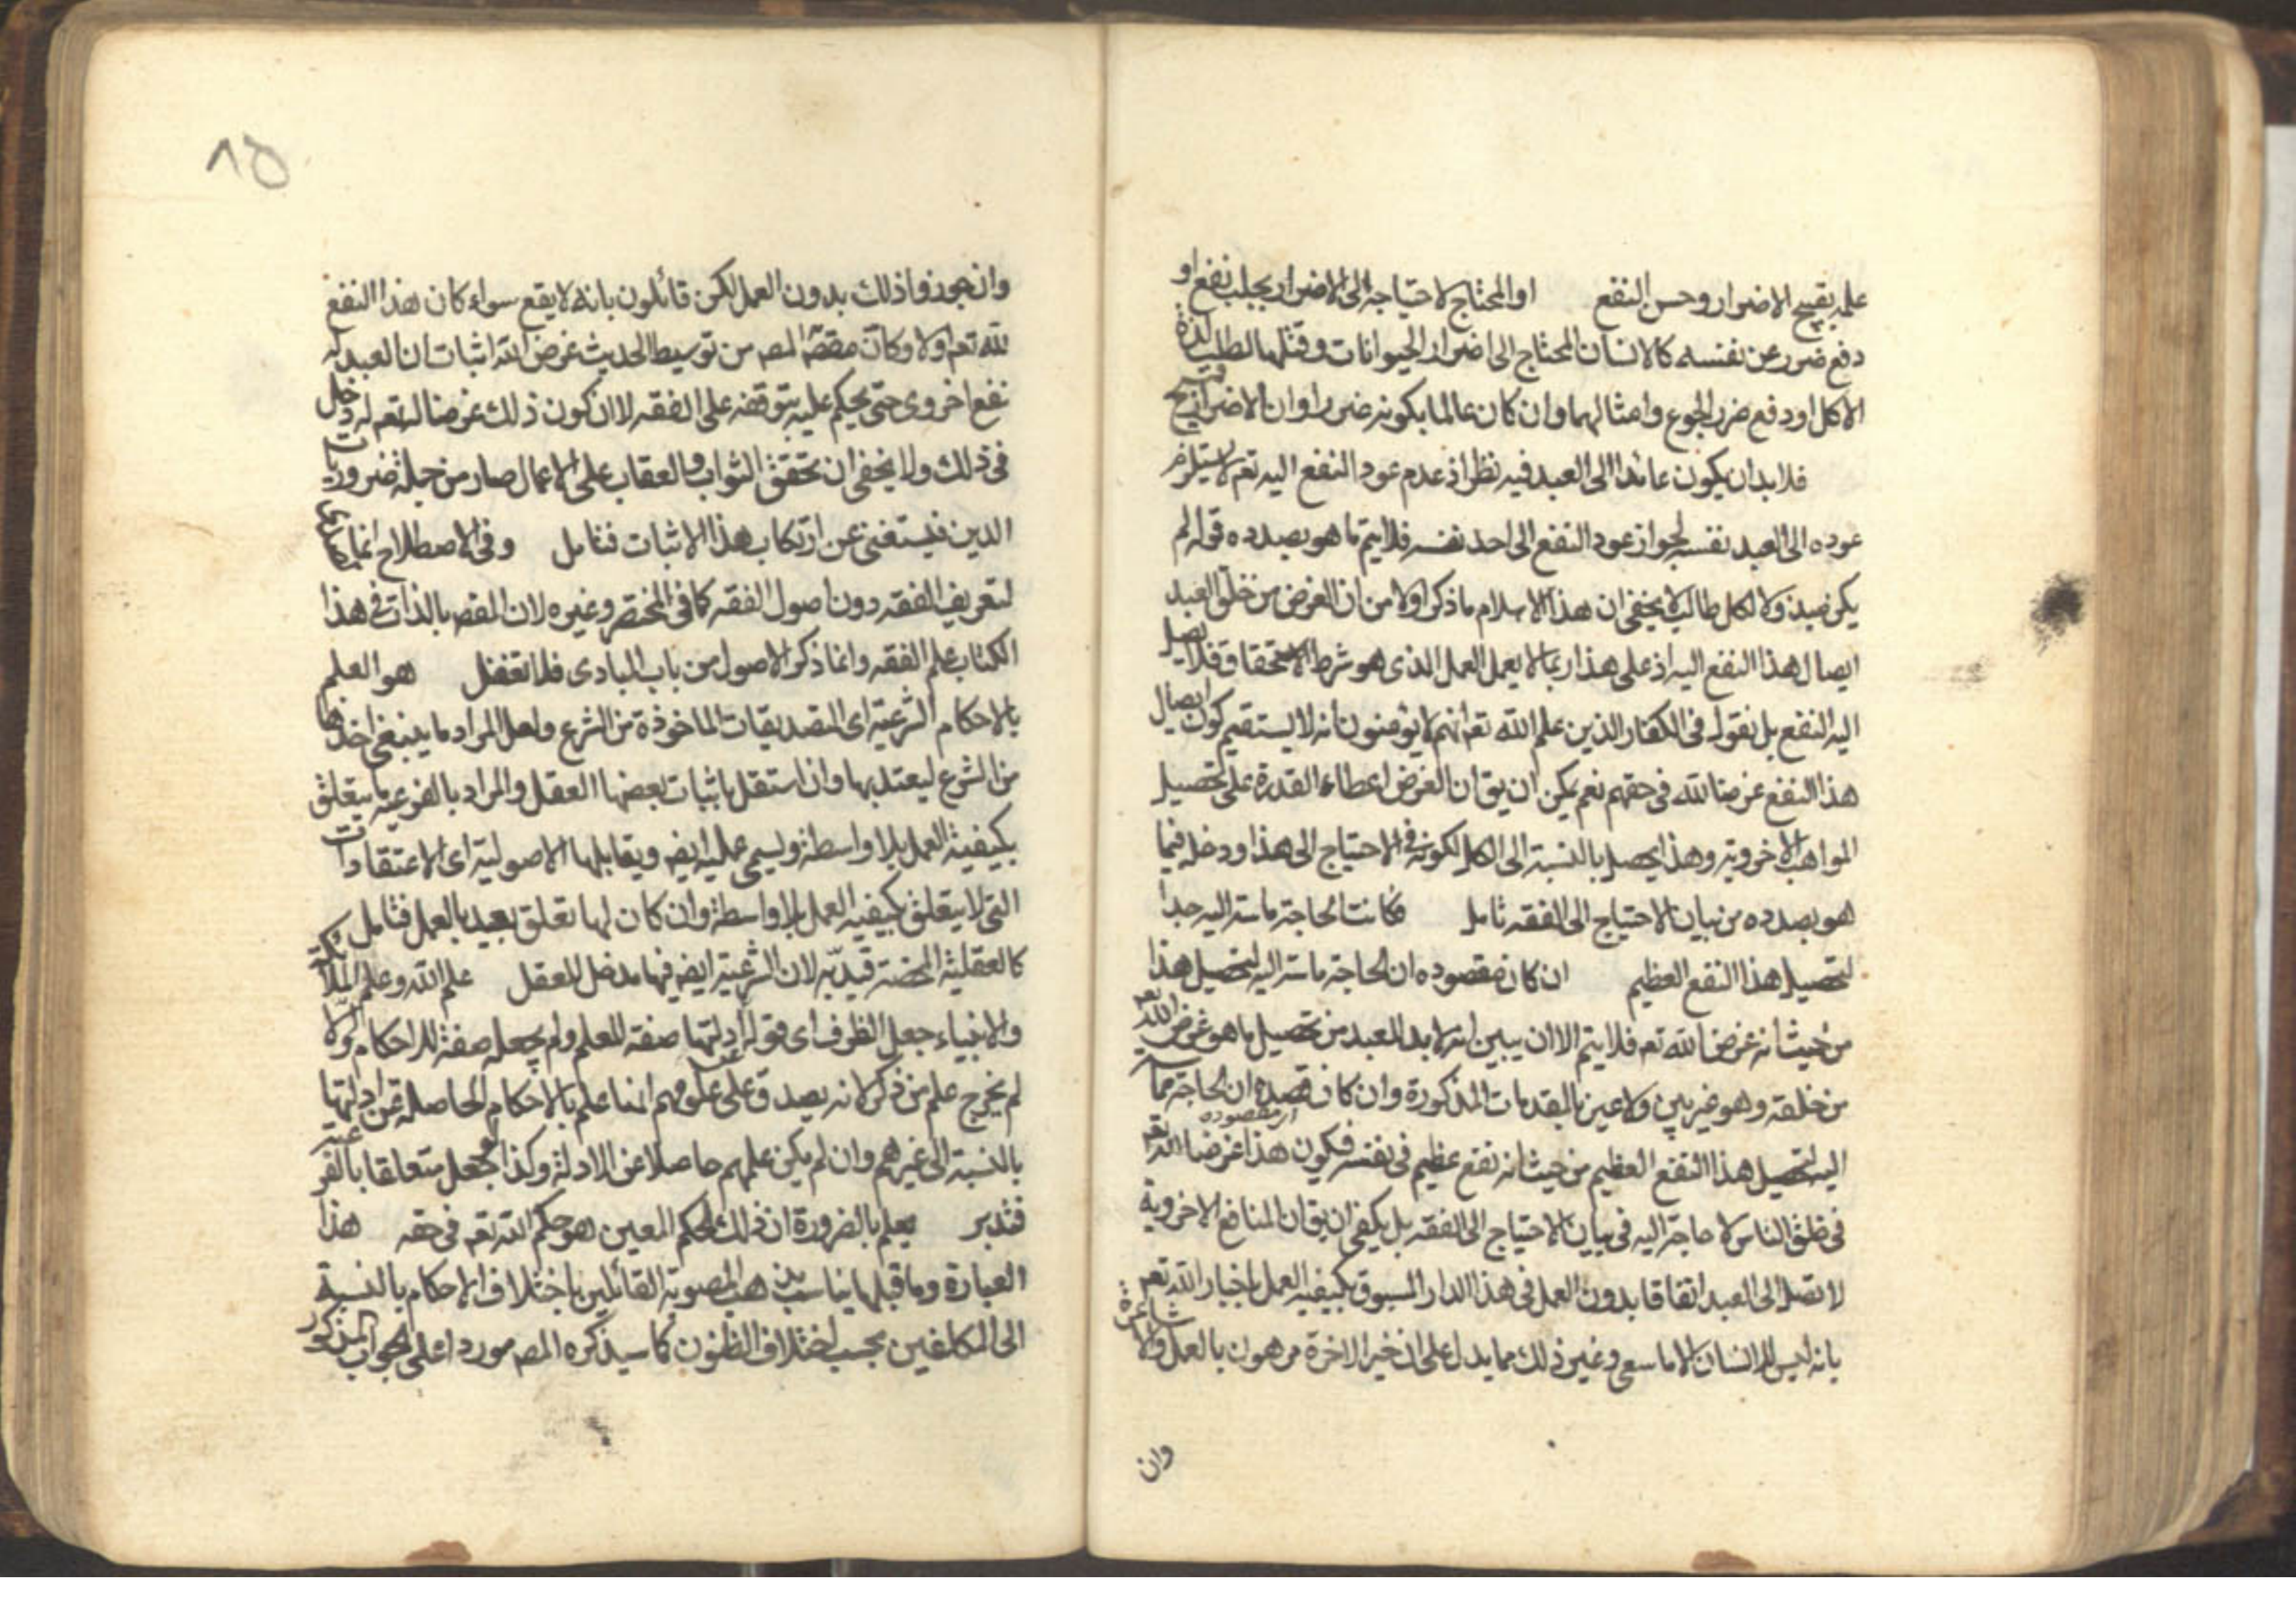 علمه بقبح الاضرار وحسن النفع او المحتاج لاحتياجه الى الاضرار بجلب نفع او
دفع ضرر عن نفسه كالانسان المحتاج الى اضرار الحيوانات وقتلها لطلب لذة
الاكل او دفع ضرر الجوع وامثالهما وان كان عالما بكونه ضررا وان الاضرار قبيح
فلا بد ان يكون عائدا الى العبد فيه نظر اذ عدم عود النفع اليه تعم لا يستلزم
عوده الى العبد نفسه لجواز عود النفع الى احد نفسه فلا يتم ما هو بصدده قوله لم
يكن مبذولا لكل طالب لا يخفى ان هذا لا يلام ما ذكر اولا من ان الغرض من خلق العبد
ايصال هذا النفع اليه اذ على هذا ربما لا يعمل العمل الذى هو شرط الاستحقاق فلا يصل
اليه النفع بل نقول فى الكفار الذين علم الله تعم انهم لا يؤمنون انه لا يستقيم كون ايصال
هذا النفع غرضا لله فى حقهم نعم يمكن ان يق ان الغرض اعطاء القدرة على تحصيل
المواهب الاخروية وهذا يحصل بالنسبة الى الكل لكونه فى الاحتياج الى هذا ودخله فيما
هو بصدده من بيان الاحتياج الى الفقه تامل فكانت الحاجة ماسة اليه جدا
لتحصيل هذا النفع العظيم ان كان مقصوده ان الحاجة ماسة اليه لتحصيل هذا
من حيث انه غرض الله تعم فلا يتم الا ان يبين انه لا بد للعبد من تحصيل ما هو غرض الله تعم
من خلقه وهو غير بين ولا عين بالمقدمات المذكورة وان كان قصده ان الحاجة مماسة
اليه لتحصيل هذا النفع العظيم من حيث انه نفع عظيم فى نفسه فيكون هذا غرضا لله تعم
ار مقصوده
فى خلق الناس لا حاجة اليه فى بيان الاحتياج الى الفقه بل يكفى ان يق ان المنافع الاخروية
لا تصل الى العبد اتفاقا بدون العمل فى هذا الدار المسبوق بكيفية العمل باخبار الله تعم
بانه ليس للانسان الا ما سعى وغير ذلك مما يدل على ان خير الاخرة مرهون بالعمل والاشاعرة
وان
١٥
وان جوزوا ذلك بدون العمل لكن قائلون بانه لا يقع سواء كان هذا النفع
لله تعم اولا وكان مقصد المصم من توسيط الحديث غرض الله اثبات ان العبد له
نفع اخروى حتى يحكم عليه بتوقفه على الفقه لا ان كون ذلك غرضا لله تعم له دخل
فى ذلك ولا يخفى ان تحقق الثواب والعقاب على الاعمال صار من جملة ضروريات
الدين فيستغنى عن ارتكاب هذا الاثبات فتامل وفى الاصطلاح انما
لتعريف الفقه دون اصول الفقه كما فى المختصر وغيره لان المقصم بالذات فى هذا
الكتاب علم الفقه وانما ذكر الاصول من باب المبادى فلا تغفل هو العلم
بالاحكام الشرعية اى التصديقات الماخوذة من الشرع ولعل المراد ما ينبغى اخذها
من الشرع ليعتد بها وان استقل باثبات بعضها العقل والمراد بالفرعية ما يتعلق
بكيفية العمل بلا واسطة وليسمى عملية ايضم ويقابلها الاصولية اى الاعتقادات
التى لا يتعلق بكيفية العمل بلا واسطة وان كان لها تعلق بعيد بالعمل فتامل
كالعقلية المحضة قيد به لان الشرعية ايضم فيها مدخل للعقل علم الله وعلم الملائكة
والانبياء جعل الظرف اى قوله عن ادلتها صفة للعلم ولم يجعله صفة للاحكام والا
لم يخرج علم من ذكر لانه يصدق على علومهم انها علم بالاحكام الحاصلة عن ادلتها
بالنسبة الى غيرهم وان لم يكن علمهم حاصلا عن الادلة وكذا لو جعل متعلقا بالفرعية
فتدبر يعلم بالضرورة ان ذلك الحكم المعين هو حكم الله تعم فى حقه هذا
العبارة وما قبلها يناسب مذهب المصوبة القائلين باختلاف الاحكام بالنسبة
الى المكلفين بحسب اختلاف الظنون كما سيذكره المصم موردا على الجواب المذكور